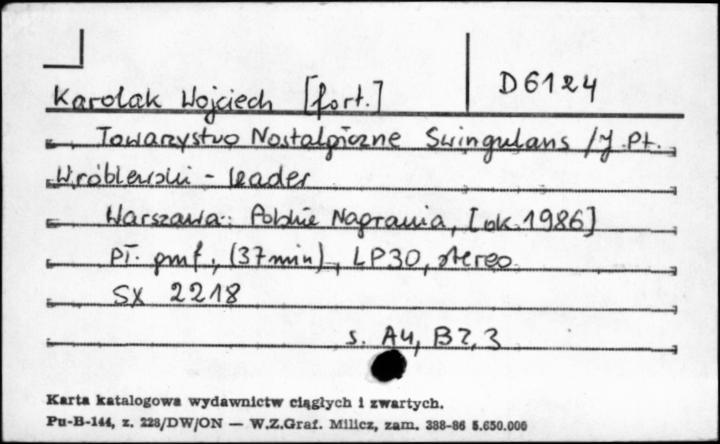 D 6124
Karolak Wojciech [fort.]
Towarzystwo Nostalgiczne Swingulans / J. Pt.
Wróblewski - leader
Warszawa: Polskie Nagrania, [ok. 1986]
Pł. gmf., (37 min), LP30, stereo.
SX 2218
s. A4, B2, 3
Karta katalogowa wydawnictw ciągłych i zwartych.
Pu-B-144, z. 228/DW/ON — W.Z.Graf. Milicz, zam. 388-86 5.650.000